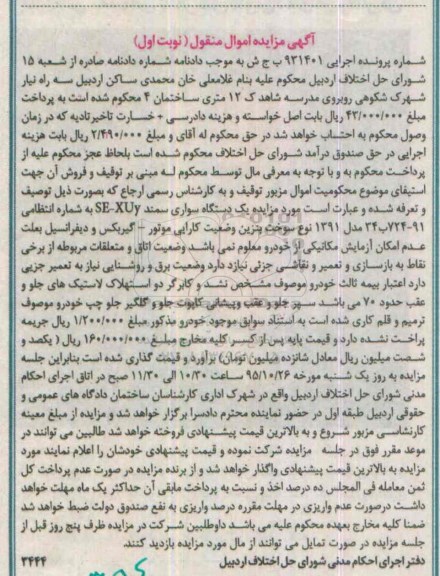 آگهی مزایده اموال منقول ( نوبت اول)
شماره پرونده اجرایی ۹۲۱۴۰۱ ب ج ش به موجب دادنامه شماره دادنامه صادره از شعبه ۱۵
شورای حل اختلاف اردبیل محکوم علیه بنام غلامعلی خان محمدی ساکن اردبیل سه راه نیار
شهرک شکوهی روبروی مدرسه شاهد ک ۱۲ متری ساختمان ۴ محکوم شده است به پرداخت
مبلغ ۴۲/۰۰۰/۰۰۰ ریال بابت اصل خواسته و هزینه دادرسی + خسارت تاخیر تادیه که در زمان
وصول محکوم به احتساب خواهد شد در حق محکوم له آقای و مبلغ ۲/۴۹۰/۰۰۰ ریال بابت هزینه
اجرایی در حق صندوق درآمد شورای حل اختلاف محکوم شده است بلحاظ عجز محکوم علیه از
پرداخت محکوم به و با توجه به معرفی مال توسط محکوم له مبنی بر توقیف و فروش آن جهت
استیفای موضوع محکومیت اموال مزبور توقیف و به کارشناس رسمی ارجاع که بصورت ذیل توصیف
و تعرفه شده و عبارت است مورد مزایده یک دستگاه سواری سمند SE-XU7 به شماره انتظامی
۹۱-۷۲۴ب۳۴ مدل ۱۳۹۱ نوع سوخت بنزین وضعیت کارایی موتور – گیربکس و دیفرانسیل بعلت
عدم امکان آزمایش مکانیکی از خودرو معلوم نمی باشد وضعیت اتاق و متعلقات مربوطه از برخی
نقاط به بازسازی و تعمیر و نقاشی جزئی نیاز دارد وضعیت برق و روشنایی نیاز به تعمیر جزیی
دارد اعتبار بیمه ثالث خودرو موصوف مشخص نشد و کابرگر دو استهلاک لاستیک های جلو و
عقب حدود ۷۰ می باشد سپر جلو و عقب وپیشانی کاپوت جلو و گلگیر جلو چپ خودرو موصوف
ترمیم و قلم کاری شده است به استناد سوابق موجود خودرو مذکور مبلغ ۱/۲۰۰/۰۰۰ ریال جریمه
پراخت نشده دارد و قیمت پایه پس از کسر کلیه مخارج مبلغ ۱۶۰/۰۰۰/۰۰۰ ریال ( یکصد و
شصت میلیون ریال معادل شانزده میلیون تومان) برآورد و قیمت گذاری شده است بنابراین جلسه
مزایده به روز یک شنبه مورخه ۹۵/۱۰/۲۶ ساعت ۱۰/۳۰ الی ۱۱/۳۰ صبح در اتاق اجرای احکام
مدنی شورای حل اختلاف اردبیل واقع در شهرک اداری کارشناسان ساختمان دادگاه های عمومی و
حقوقی اردبیل طبقه اول در حضور نماینده محترم دادسرا برگزار خواهد شد و مزایده از مبلغ معینه
کارشناسی مزبور شروع و به بالاترین قیمت پیشنهادی فروخته خواهد شد طالبین می توانند در
موعد مقرر فوق در جلسه مزایده شرکت نموده و قیمت پیشنهادی خودشان را اعلام نمایند مورد
مزایده به بالاترین قیمت پیشنهادی واگذار خواهد شد و از برنده مزایده در صورت عدم پرداخت کل
ثمن معامله فی المجلس ده درصد اخذ و نسبت به پرداخت مابقی آن حداکثر یک ماه مهلت خواهد
داشت درصورت عدم واریزی در مهلت مقرره درصد واریزی به نفع صندوق دولت ضبط خواهد شد
ضمنا کلیه مخارج بعهده محکوم علیه می باشد داوطلبین شرکت در مزایده ظرف پنج روز قبل از
جلسه مزایده در صورت تمایل می توانند از مال مورد مزایده بازدید کنند.
دفتر اجرای احکام مدنی شورای حل اختلاف اردبیل ۳۴۴۴